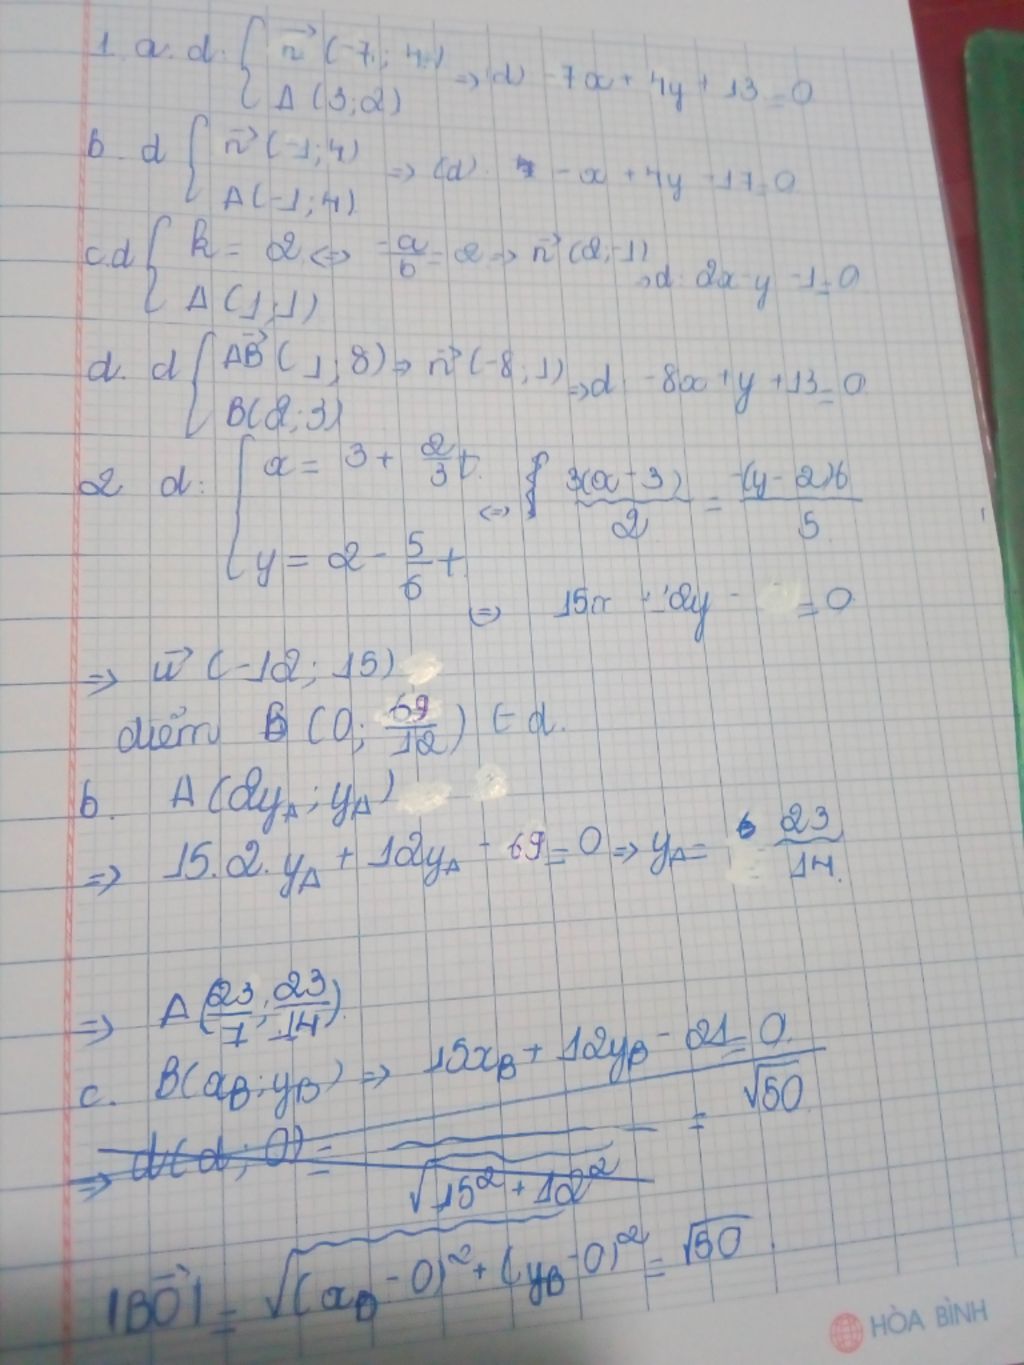 1. a. d: { n⃗ (-7; 4) ⇒ (d) -7x + 4y + 13 = 0
A (3; 2)
b. d { n⃗ (-1; 4) ⇒ (d) - x + 4y - 17 = 0
A (-1; 4)
c. d { k = 2 ⇔ -a/b = 2 ⇒ n⃗ (2; -1) ⇒ d: 2x - y - 1 = 0
A (1; 1)
d. d { AB⃗ (1; 8) ⇒ n⃗ (-8; 1) ⇒ d: -8x + y + 13 = 0
B(2; 3)
2 d: { x = 3 + 2/3 t ⇔ 3(x - 3)/2 = -(y - 2)6/5
y = 2 - 5/6 t
⇔ 15x + 12y - = 0
⇒ u⃗ (-12; 15)
điểm B (0; 69/12) ∈ d.
b. A (2yA; yA)
⇒ 15. 2. yA + 12yA - 69 = 0 ⇒ yA = 23/14.
⇒ A (23/7; 23/14).
c. B(xB; yB) ⇒ 15xB + 12yB - 21 = 0
⇒ d(d; 0) = / √15² + 12² = √50
|BO⃗| = √(xB - 0)² + (yB - 0)² = √50
HÒA BÌNH